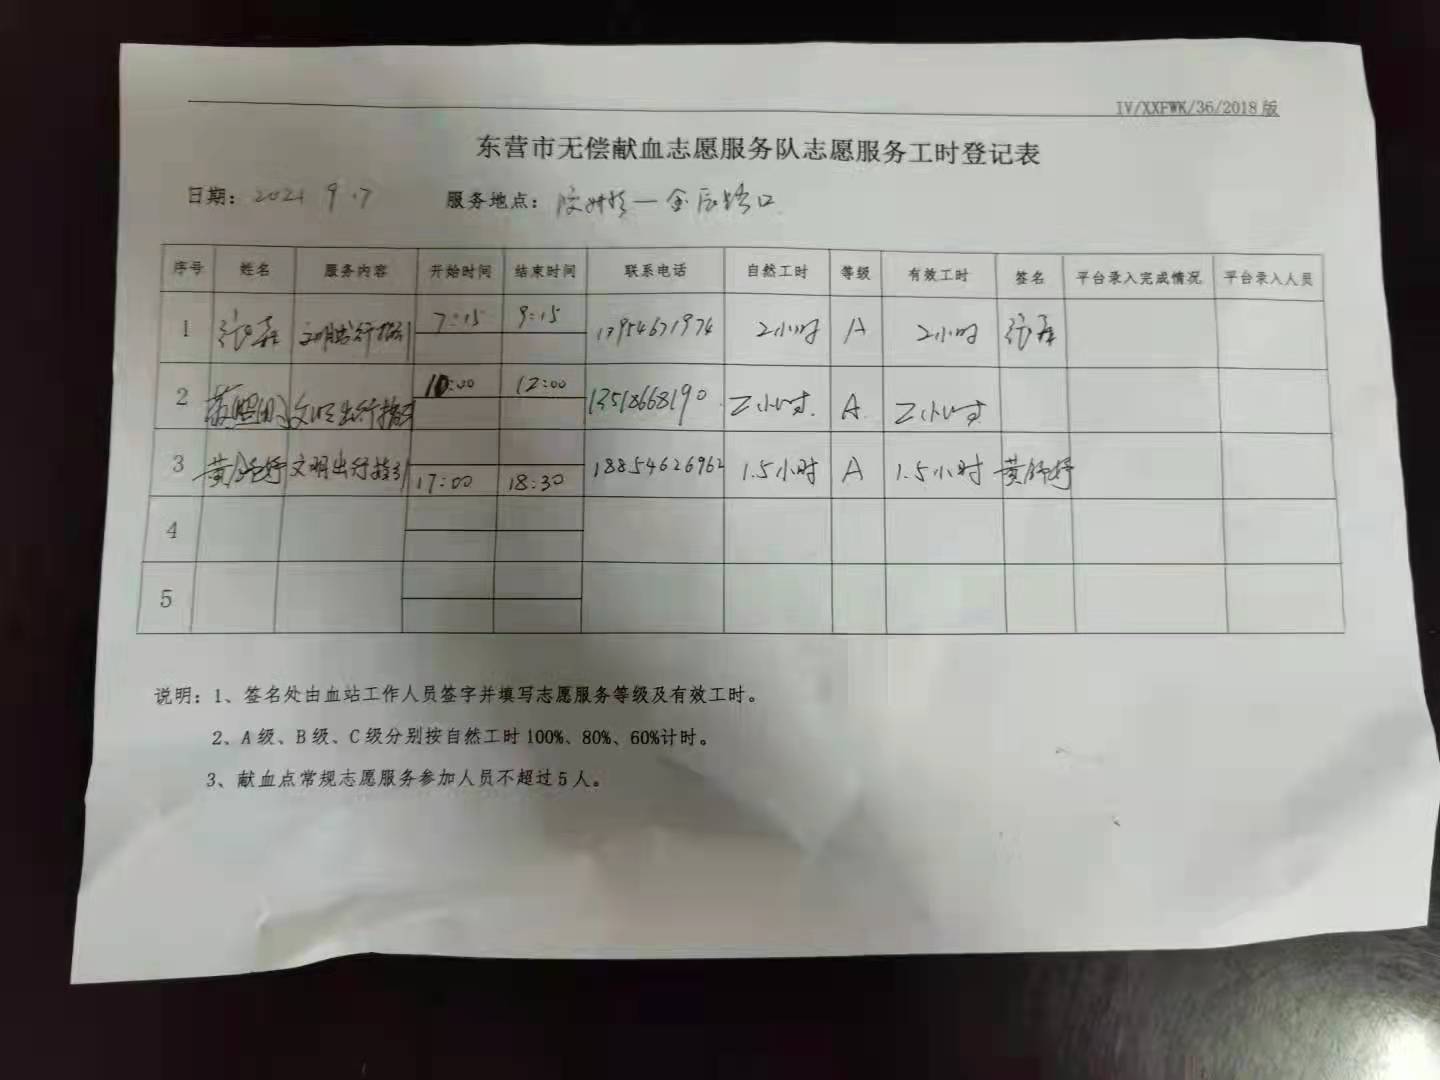 IV/XXFWK/36/2018版
东营市无偿献血志愿服务队志愿服务工时登记表
日期：2021 9.7 服务地点：胶州路—金辰路口
序号 姓名 服务内容 开始时间 结束时间 联系电话 自然工时 等级 有效工时 签名 平台录入完成情况 平台录入人员
1 文明出行指引 7:15 9:15 13954671974 2小时 A 2小时
2 文明出行指引 10:00 12:00 13518668190 2小时 A 2小时
3 文明出行指引 17:00 18:30 18854626962 1.5小时 A 1.5小时
4
5
说明：1、签名处由血站工作人员签字并填写志愿服务等级及有效工时。
2、A级、B级、C级分别按自然工时100%、80%、60%计时。
3、献血点常规志愿服务参加人员不超过5人。